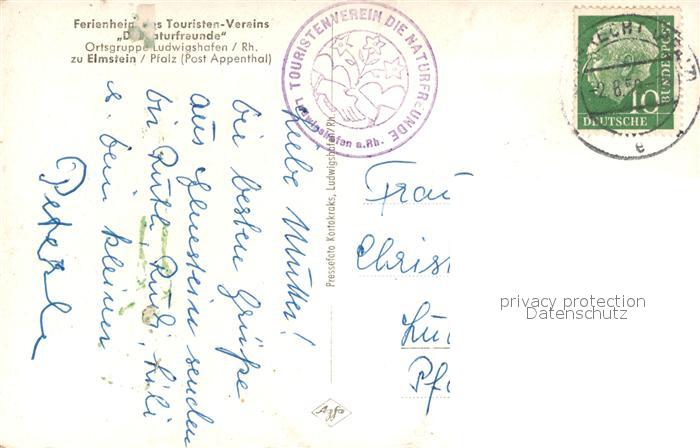 Ferienheim des Touristen-Vereins
„Die Naturfreunde"
Ortsgruppe Ludwigshafen / Rh.
zu Elmstein / Pfalz (Post Appenthal)
TOURISTENVEREIN DIE NATURFREUNDE
Ludwigshafen a. Rh.
10
DEUTSCHE
BUNDESPOST
Liebe Mutter!
die besten Grüße
aus Elmstein senden
dir Ruth, Rudi, Lili
u. dein kleiner
Peterle
Pressefoto Kartokraks, Ludwigshafen/Rh.
Azfa
Frau
Christ
Lu
Pf
privacy protection
Datenschutz